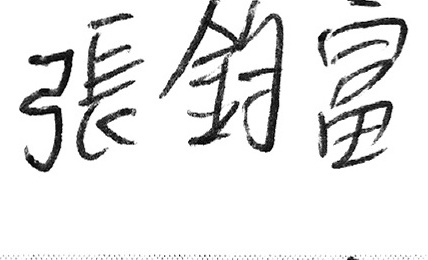 張鈞富